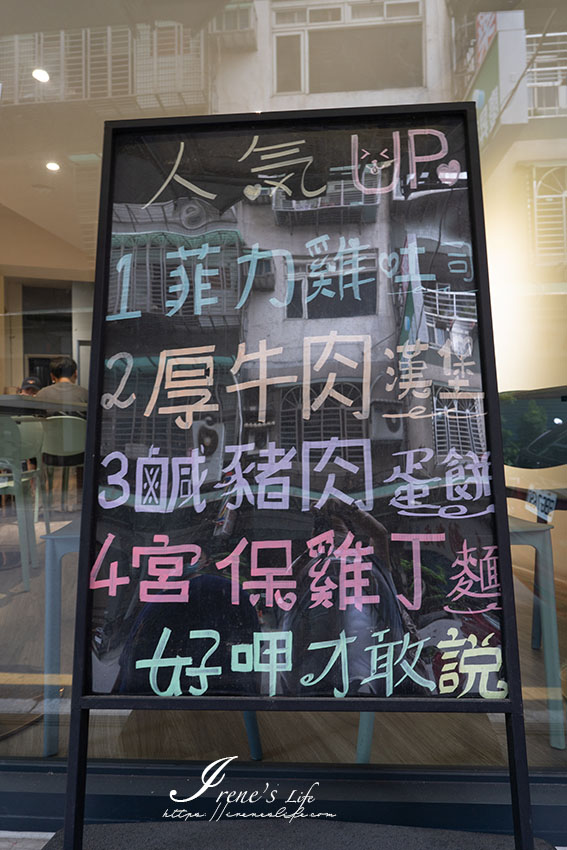 人氣UP
1菲力雞吐司
2厚牛肉漢堡
3鹹豬肉蛋餅
4宮保雞丁麵
好呷才敢說
Irene's Life
https://ireneslife.com/